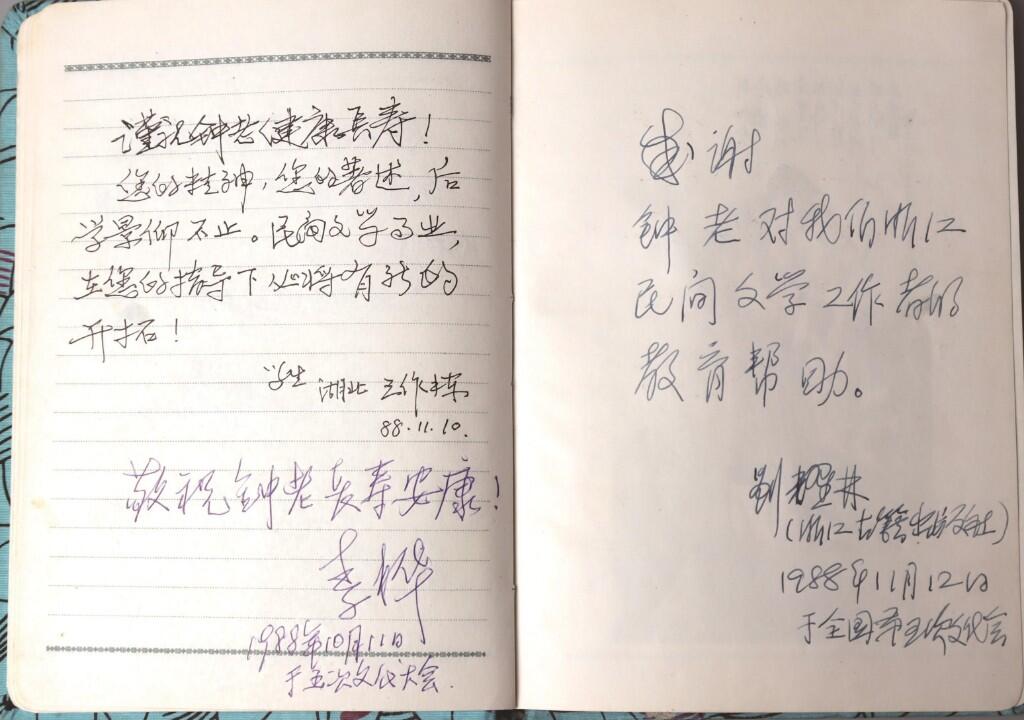 谨祝钟老健康长寿!
您的精神,您的著述,后
学景仰不止。民间文学事业,
在您的指导下必将有新的
开拓!
学生 湖北 王作栋
88.11.10.
敬祝钟老长寿安康!
李桦
1988年10月11日
于五次文代大会.
感谢
钟老对我们浙江
民间文学工作者的
教育帮助。
刘耀林
(浙江古籍出版社)
1988年11月12日
于全国第五次文代会